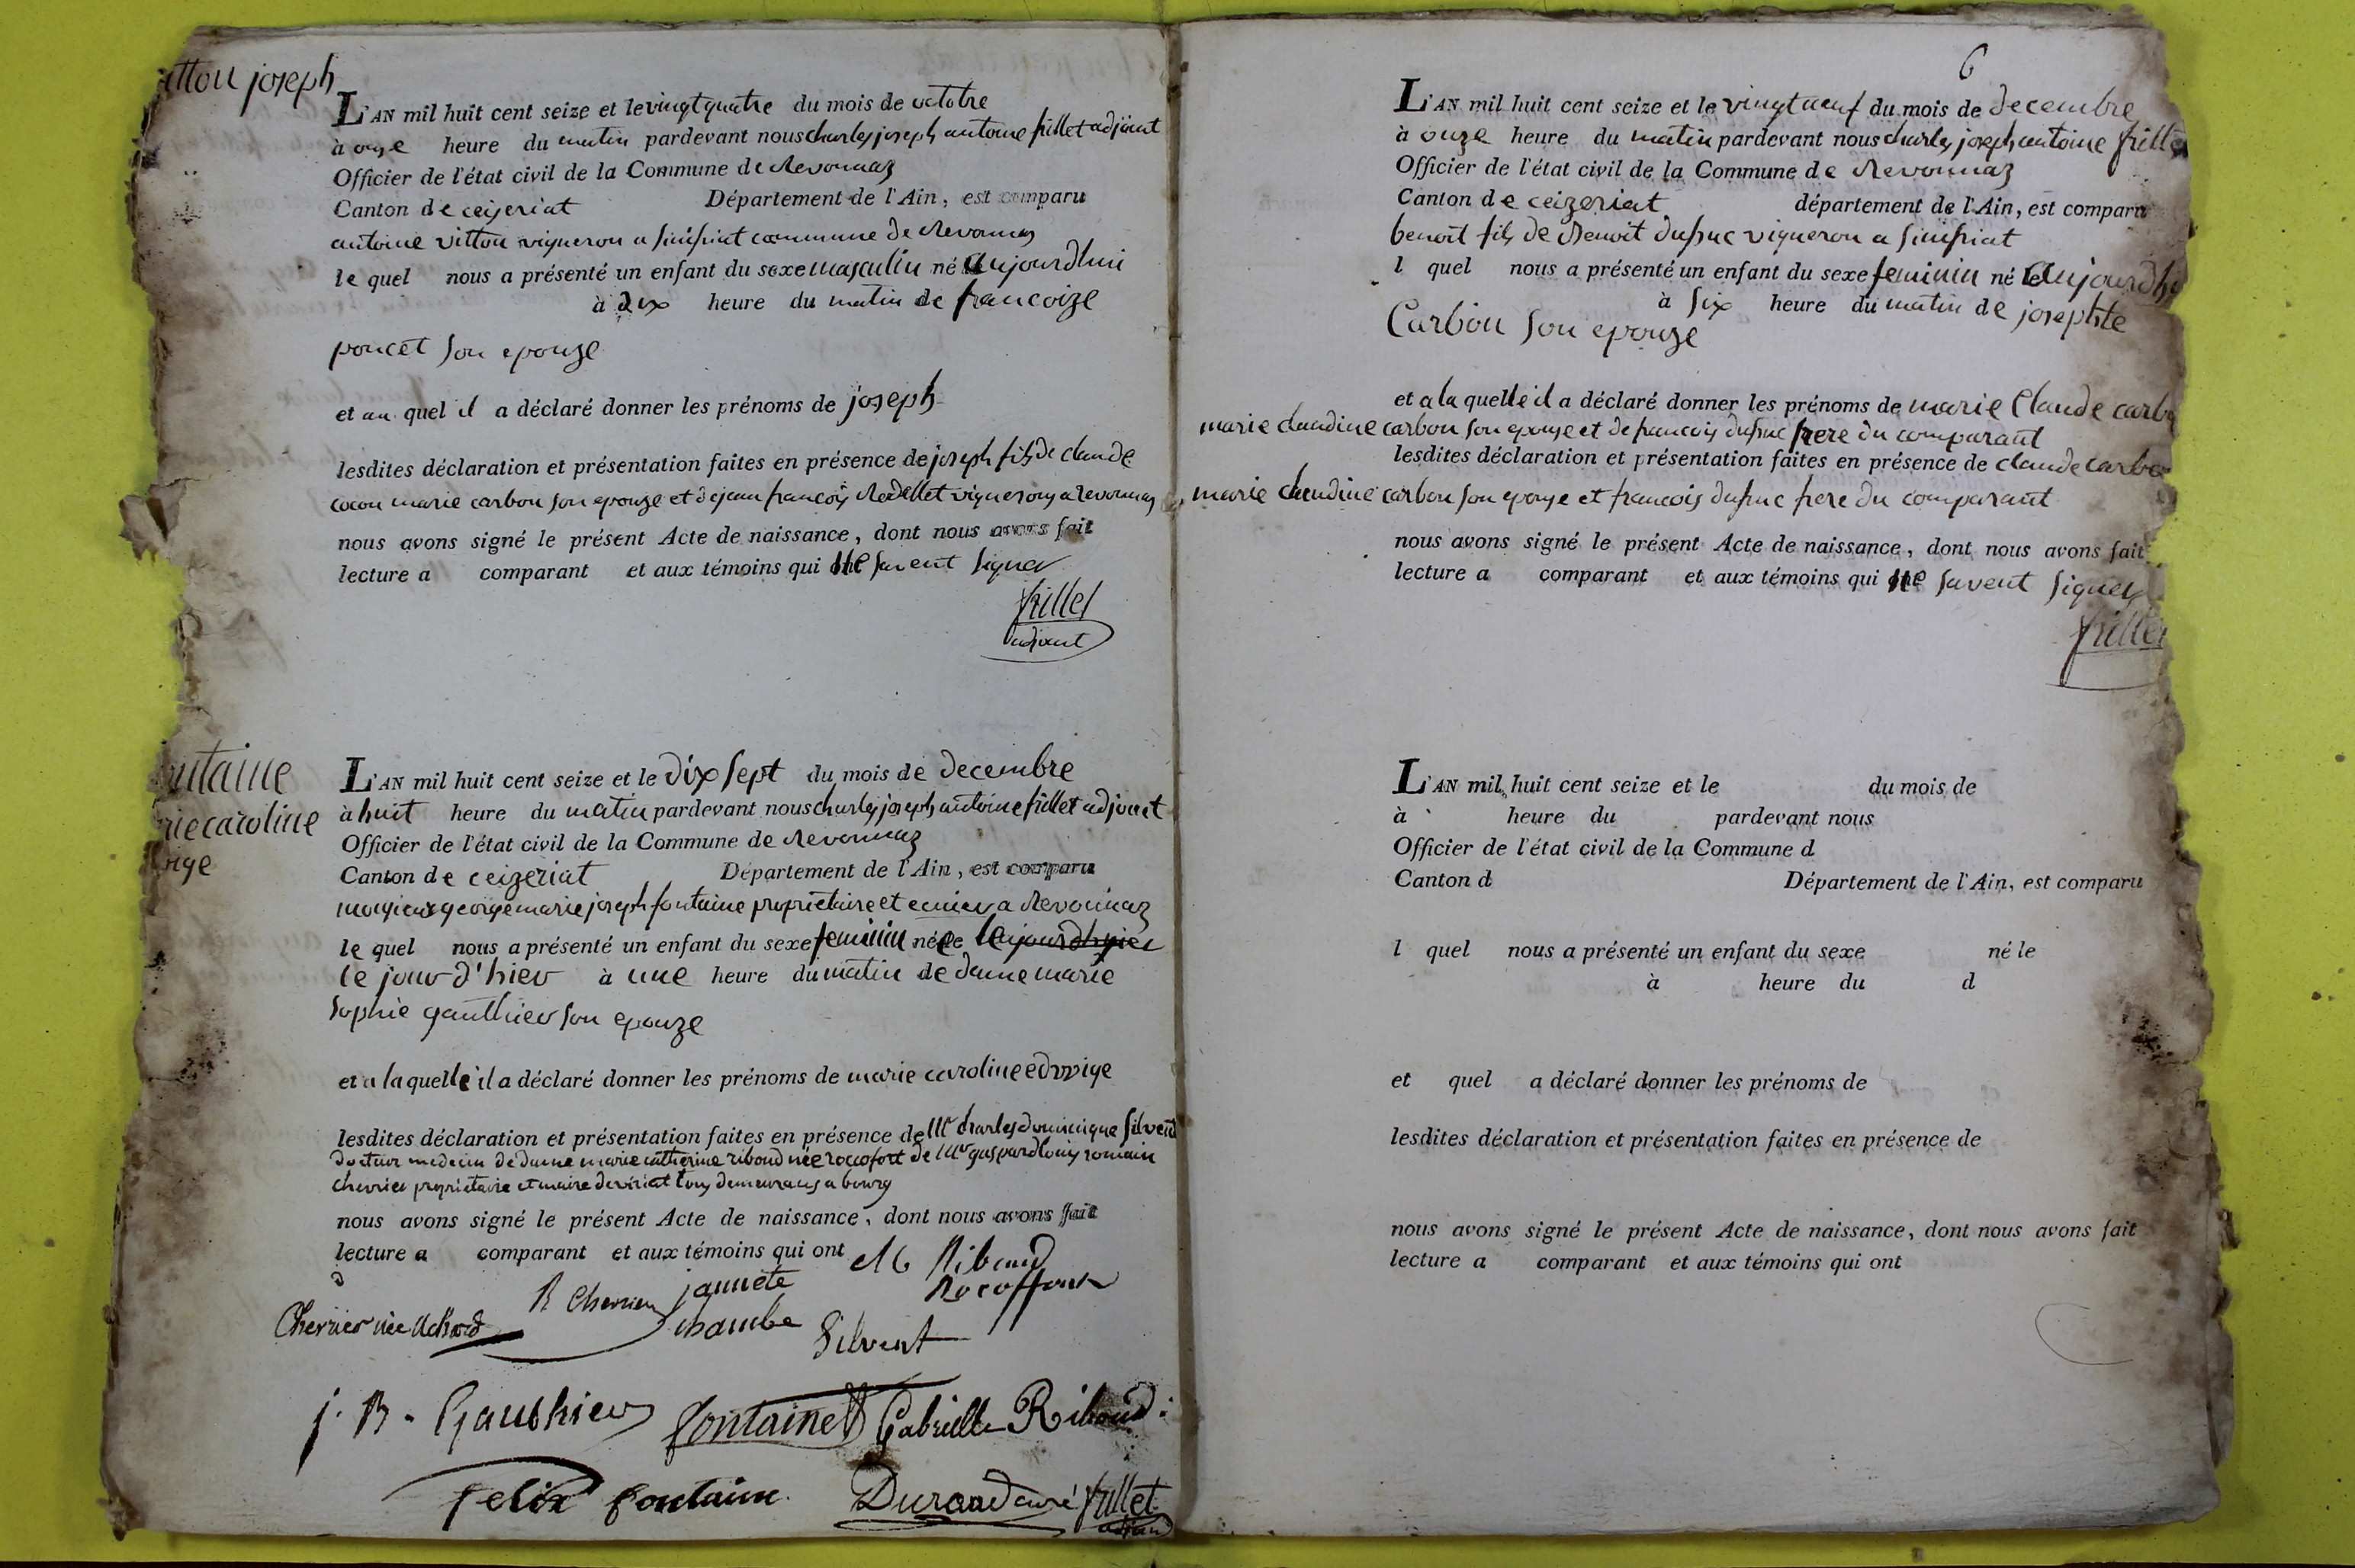 ittou joseph
L'AN mil huit cent seize et le vingt quatre du mois de octobre
à onze heure du matin pardevant nous charles joseph antoine fillet adjoint
Officier de l'état civil de la Commune de Revonnaz
Canton de ceyzeriat Département de l'Ain, est comparu
antoine vittou vigneron a commune de Revonnaz
le quel nous a présenté un enfant du sexe masculin né aujourdhui
à dix heure du matin de francoize
poncet son epouze
et au quel il a déclaré donner les prénoms de joseph
lesdites déclaration et présentation faites en présence de joseph fils de claude
cocon marie carbon son epouze et de jean françois vignerons a revonnaz
nous avons signé le présent Acte de naissance, dont nous avons fait
lecture a comparant et aux témoins qui ne savent signer
fillet
adjoint
ntaine
rie caroline
wige
L'AN mil huit cent seize et le dix sept du mois de decembre
à huit heure du matin pardevant nous charles joseph antoine fillet adjoint
Officier de l'état civil de la Commune de Revonnaz
Canton de ceizeriat Département de l'Ain, est comparu
monsieur george marie joseph fontaine propriétaire et a Revonnaz
le quel nous a présenté un enfant du sexe feminin née le
le jour d'hier à une heure du matin de dame marie
sophie gauthier son epouze
et a laquelle il a déclaré donner les prénoms de marie caroline edwige
lesdites déclaration et présentation faites en présence de Mr charles dominique silvent
docteur medecin de dame marie catherine riboud née rocofort de Mr gaspard louis romain
chevrier propriétaire et maire de viriat tous demeurans a bourg
nous avons signé le présent Acte de naissance, dont nous avons fait
lecture a comparant et aux témoins qui ont
M C Riboud
Rocoffort
jannete
chambe
R Chevrier
Chevrier née
Silvent
j. B. Gauthier fontaine Gabrielle Riboud
felix fontaine Durand curé fillet
adjoint
6
L'AN mil huit cent seize et le vingt neuf du mois de decembre
à onze heure du matin pardevant nous charles joseph antoine fille
Officier de l'état civil de la Commune de Revonnaz
Canton de ceizeriat département de l'Ain, est comparu
benoît fils de Benoît dufuc vigneron a
l quel nous a présenté un enfant du sexe feminin né le aujourdh
à six heure du matin de josephte
Carbon son epouze
et a la quelle il a déclaré donner les prénoms de marie Claude carbo
marie claudine carbon son epouse et de francois dufuc frere du comparant
lesdites déclaration et présentation faites en présence de claude carbo
marie claudine carbon son epouse et francois dufuc frere du comparant
nous avons signé le présent Acte de naissance, dont nous avons fait
lecture a comparant et aux témoins qui ne savent signer
fillet
L'AN mil huit cent seize et le du mois de
à heure du pardevant nous
Officier de l'état civil de la Commune d
Canton d Département de l'Ain, est comparu
l quel nous a présenté un enfant du sexe né le
à heure du d
et quel a déclaré donner les prénoms de
lesdites déclaration et présentation faites en présence de
nous avons signé le présent Acte de naissance, dont nous avons fait
lecture a comparant et aux témoins qui ont